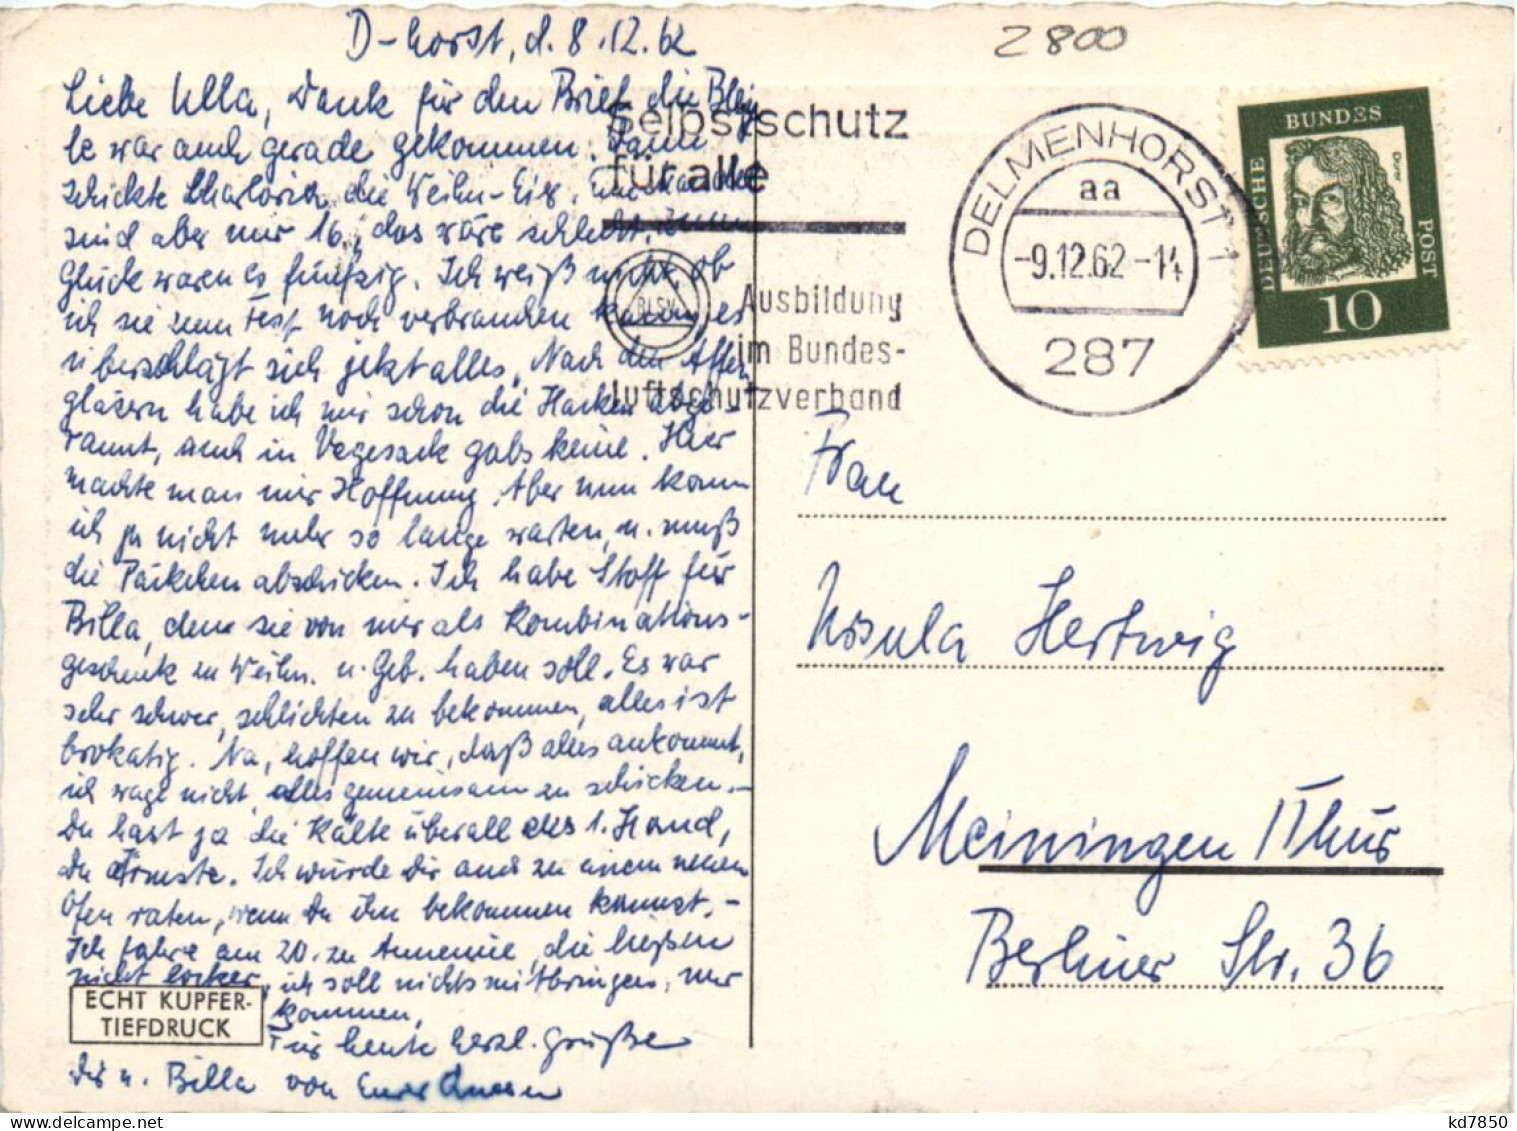 D-horst, d. 8.12.62
Liebe Ulla, Dank für den Brief, die Bley
le war auch gerade gekommen. Dann
schickte die Weihn-
sind aber nur 16, das wäre schlecht. Zum
Glück waren es fünfzig. Ich weiß nicht, ob
ich sie zum Fest noch verbrauchen kann, es
überschlägt sich jetzt alles. Nach den Affen
gläsern habe ich mir schon die Hacken abge-
rannt, auch in Vegesack gabs keine. Hier
machte man mir Hoffnung. Aber nun kann
ich ja nicht mehr so lange warten, u. muß
die Päckchen abschicken. Ich habe Stoff für
Billa, den sie von mir als Kombinations-
geschenk zu Weihn. u. Geb. haben soll. Es war
sehr schwer, schlichten zu bekommen, alles ist
brokatig. Na, hoffen wir, daß alles ankommt,
ich wage nicht, alles gemeinsam zu schicken.-
Du hast ja die Kälte überall aus 1. Hand,
du Ärmste. Ich würde Dir auch zu einem neuen
Ofen raten, wenn Du ihn bekommen kannst.-
Ich fahre am 20. zu Annemie, die ließen
nicht locker, ich soll nichts mitbringen, nur
kommen.
Für heute herzl. Grüße
Dir u. Billa von Eurer
ECHT KUPFER-
TIEFDRUCK
Z 800
Selbstschutz
für alle
BLSV
Ausbildung
im Bundes-
luftschutzverband
DELMENHORST 1
aa
-9.12.62-14
287
DEUTSCHE
BUNDES
POST
Dürer
10
Frau
Ursula Hertwig
Meiningen /Thür
Berliner Str. 36
kd7850